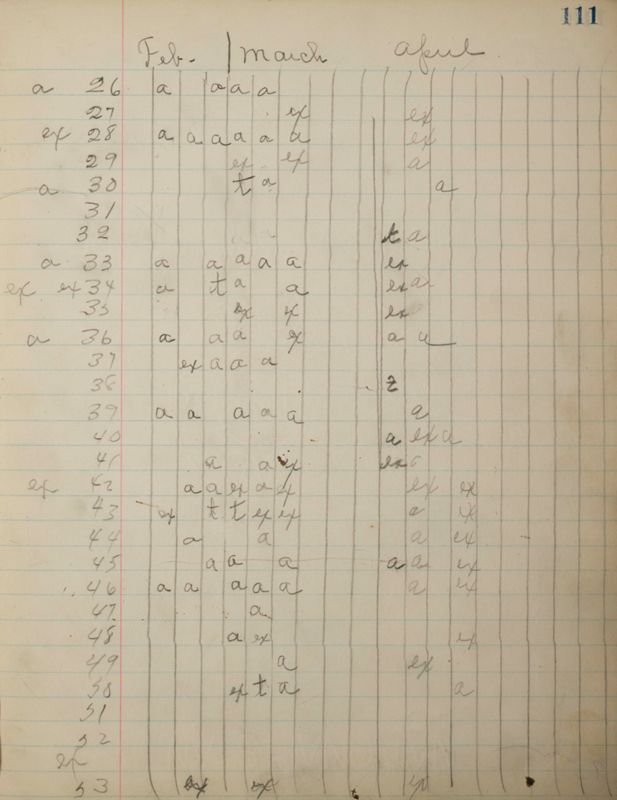 111
Feb. March April
a 26 a a a a
27 ex ex
ex 28 a a a a a a ex
29 ex ex a
a 30 t a a
31
32 t a
a 33 a a a a a ex
ex ex 34 a t a a ex a
35 ex ex ex
a 36 a a a ex a a
37 ex a a a
38 z
39 a a a a a a
40 a ex a
41 a a ex ex
ex 42 a a ex a ex ex ex
43 ex t t ex ex a ex
44 a a a ex
45 a a a a a ex
46 a a a a a a ex
47 a
48 a ex ex
49 a ex
50 ex t a a
51
52
ex
53 ex ex ex